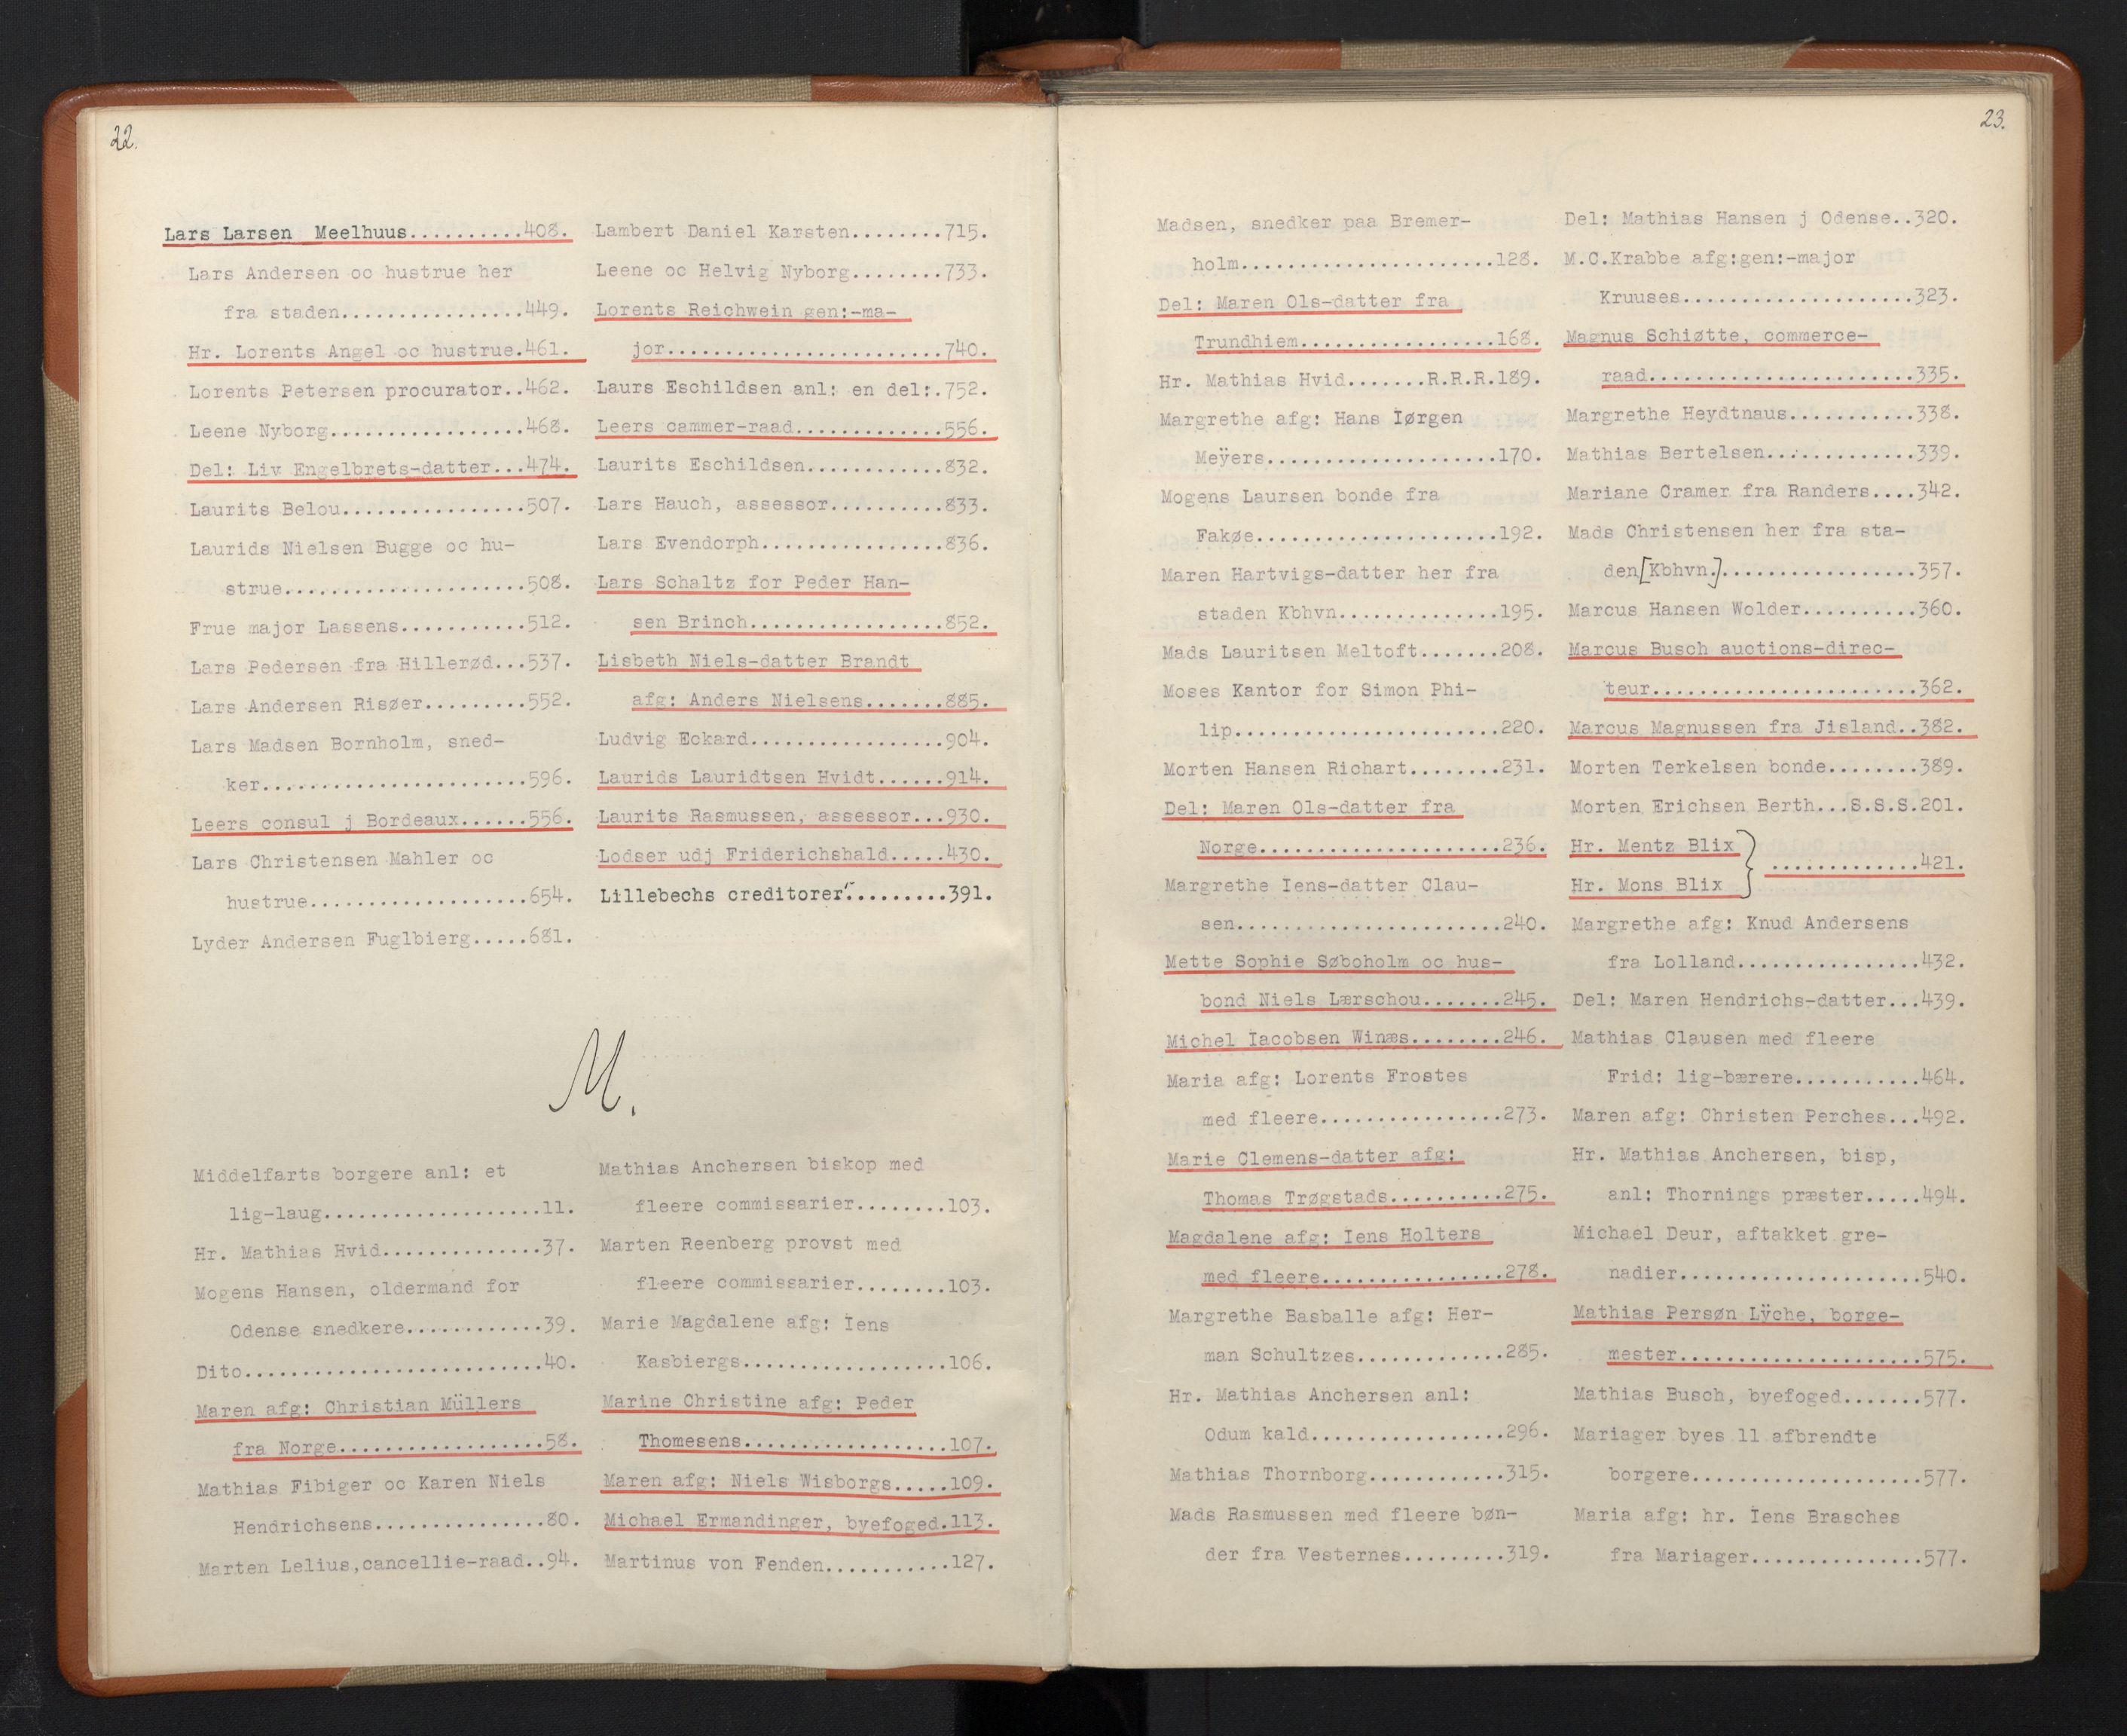 22.
Lars Larsen  Meelhuus..........408.
Lars Andersen oc hustrue her
fra staden................449.
Hr. Lorents Angel oc hustrue.461.
Lorents Petersen procurator..462.
Leene Nyborg.................468.
Del: Liv Engelbrets-datter...474.
Laurits Belou................507.
Laurids Nielsen Bugge oc hu-
strue.....................508.
Frue major Lassens...........512.
Lars Pedersen fra Hillerød...537.
Lars Andersen Risøer.........552.
Lars Madsen Bornholm, sned-
ker.......................596.
Leers consul j Bordeaux......556.
Lars Christensen Mahler oc
hustrue...................654.
Lyder Andersen Fuglbierg.....681.
Lambert Daniel Karsten........715.
Leene oc Helvig Nyborg........733.
Lorents Reichwein gen:-ma-
jor........................740.
Laurs Eschildsen anl: en del:.752.
Leers cammer-raad.............556.
Laurits Eschildsen............832.
Lars Hauch, assessor..........833.
Lars Evendorph................836.
Lars Schaltz for Peder Han-
sen Brinch.................852.
Lisbeth Niels-datter Brandt
afg: Anders Nielsens.......885.
Ludvig Eckard.................904.
Laurids Lauridtsen Hvidt......914.
Laurits Rasmussen, assessor...930.
Lodser udj Friderichshald.....430.
Lillebechs creditorer.........391.
M.
Middelfarts borgere anl: et
lig-laug...................11.
Hr. Mathias Hvid..............37.
Mogens Hansen, oldermand for
Odense snedkere............39.
Dito..........................40.
Maren afg: Christian Müllers
fra Norge..................58.
Mathias Fibiger oc Karen Niels
Hendrichsens...............80.
Marten Lelius,cancellie-raad..94.
Mathias Anchersen biskop med
fleere commissarier........103.
Marten Reenberg provst med
fleere commissarier........103.
Marie Magdalene afg: Iens
Kasbiergs..................106.
Marine Christine afg: Peder
Thomesens..................107.
Maren afg: Niels Wisborgs.....109.
Michael Ermandinger, byefoged.113.
Martinus von Fenden...........127.
23.
Madsen, snedker paa Bremer-
holm......................128.
Del: Maren Ols-datter fra
Trundhiem.................168.
Hr. Mathias Hvid.......R.R.R.189.
Margrethe afg: Hans Iørgen
Meÿers....................170.
Mogens Laursen bonde fra
Fakøe.....................192.
Maren Hartvigs-datter her fra
staden Kbhvn..............195.
Mads Lauritsen Meltoft.......208.
Moses Kantor for Simon Phi-
lip.......................220.
Morten Hansen Richart........231.
Del: Maren Ols-datter fra
Norge.....................236.
Margrethe Iens-datter Clau-
sen.......................240.
Mette Sophie Søboholm oc hus-
bond Niels Lærschou.......245.
Michel Iacobsen Winæs........246.
Maria afg: Lorents Frostes
med fleere................273.
Marie Clemens-datter afg:
Thomas Trøgstads..........275.
Magdalene afg: Iens Holters
med fleere................278.
Margrethe Basballe afg: Her-
man Schultzes.............285.
Hr. Mathias Anchersen anl:
Odum kald.................296.
Mathias Thornborg............315.
Mads Rasmussen med fleere bøn-
der fra Vesternes.........319.
Del: Mathias Hansen j Odense..320.
M.C.Krabbe afg:gen:-major
Kruuses....................323.
Magnus Schiøtte, commerce-
raad.......................335.
Margrethe Heydtnaus...........338.
Mathias Bertelsen.............339.
Mariane Cramer fra Randers....342.
Mads Christensen her fra sta-
den[Kbhvn.].................357.
Marcus Hansen Wolder..........360.
Marcus Busch auctions-direc-
teur.......................362.
Marcus Magnussen fra Jisland..382.
Morten Terkelsen bonde........389.
Morten Erichsen Berth...S.S.S.201.
Hr. Mentz Blix
Hr. Mons Blix } .............421.
Margrethe afg: Knud Andersens
fra Lolland................432.
Del: Maren Hendrichs-datter...439.
Mathias Clausen med fleere
Frid: lig-bærere...........464.
Maren afg: Christen Perches...492.
Hr. Mathias Anchersen, bisp,
anl: Thornings præster.....494.
Michael Deur, aftakket gre-
nadier.....................540.
Mathias Persøn Lÿche, borge-
mester.....................575.
Mathias Busch, byefoged.......577.
Mariager byes 11 afbrendte
borgere....................577.
Maria afg: hr. Iens Brasches
fra Mariager...............577.